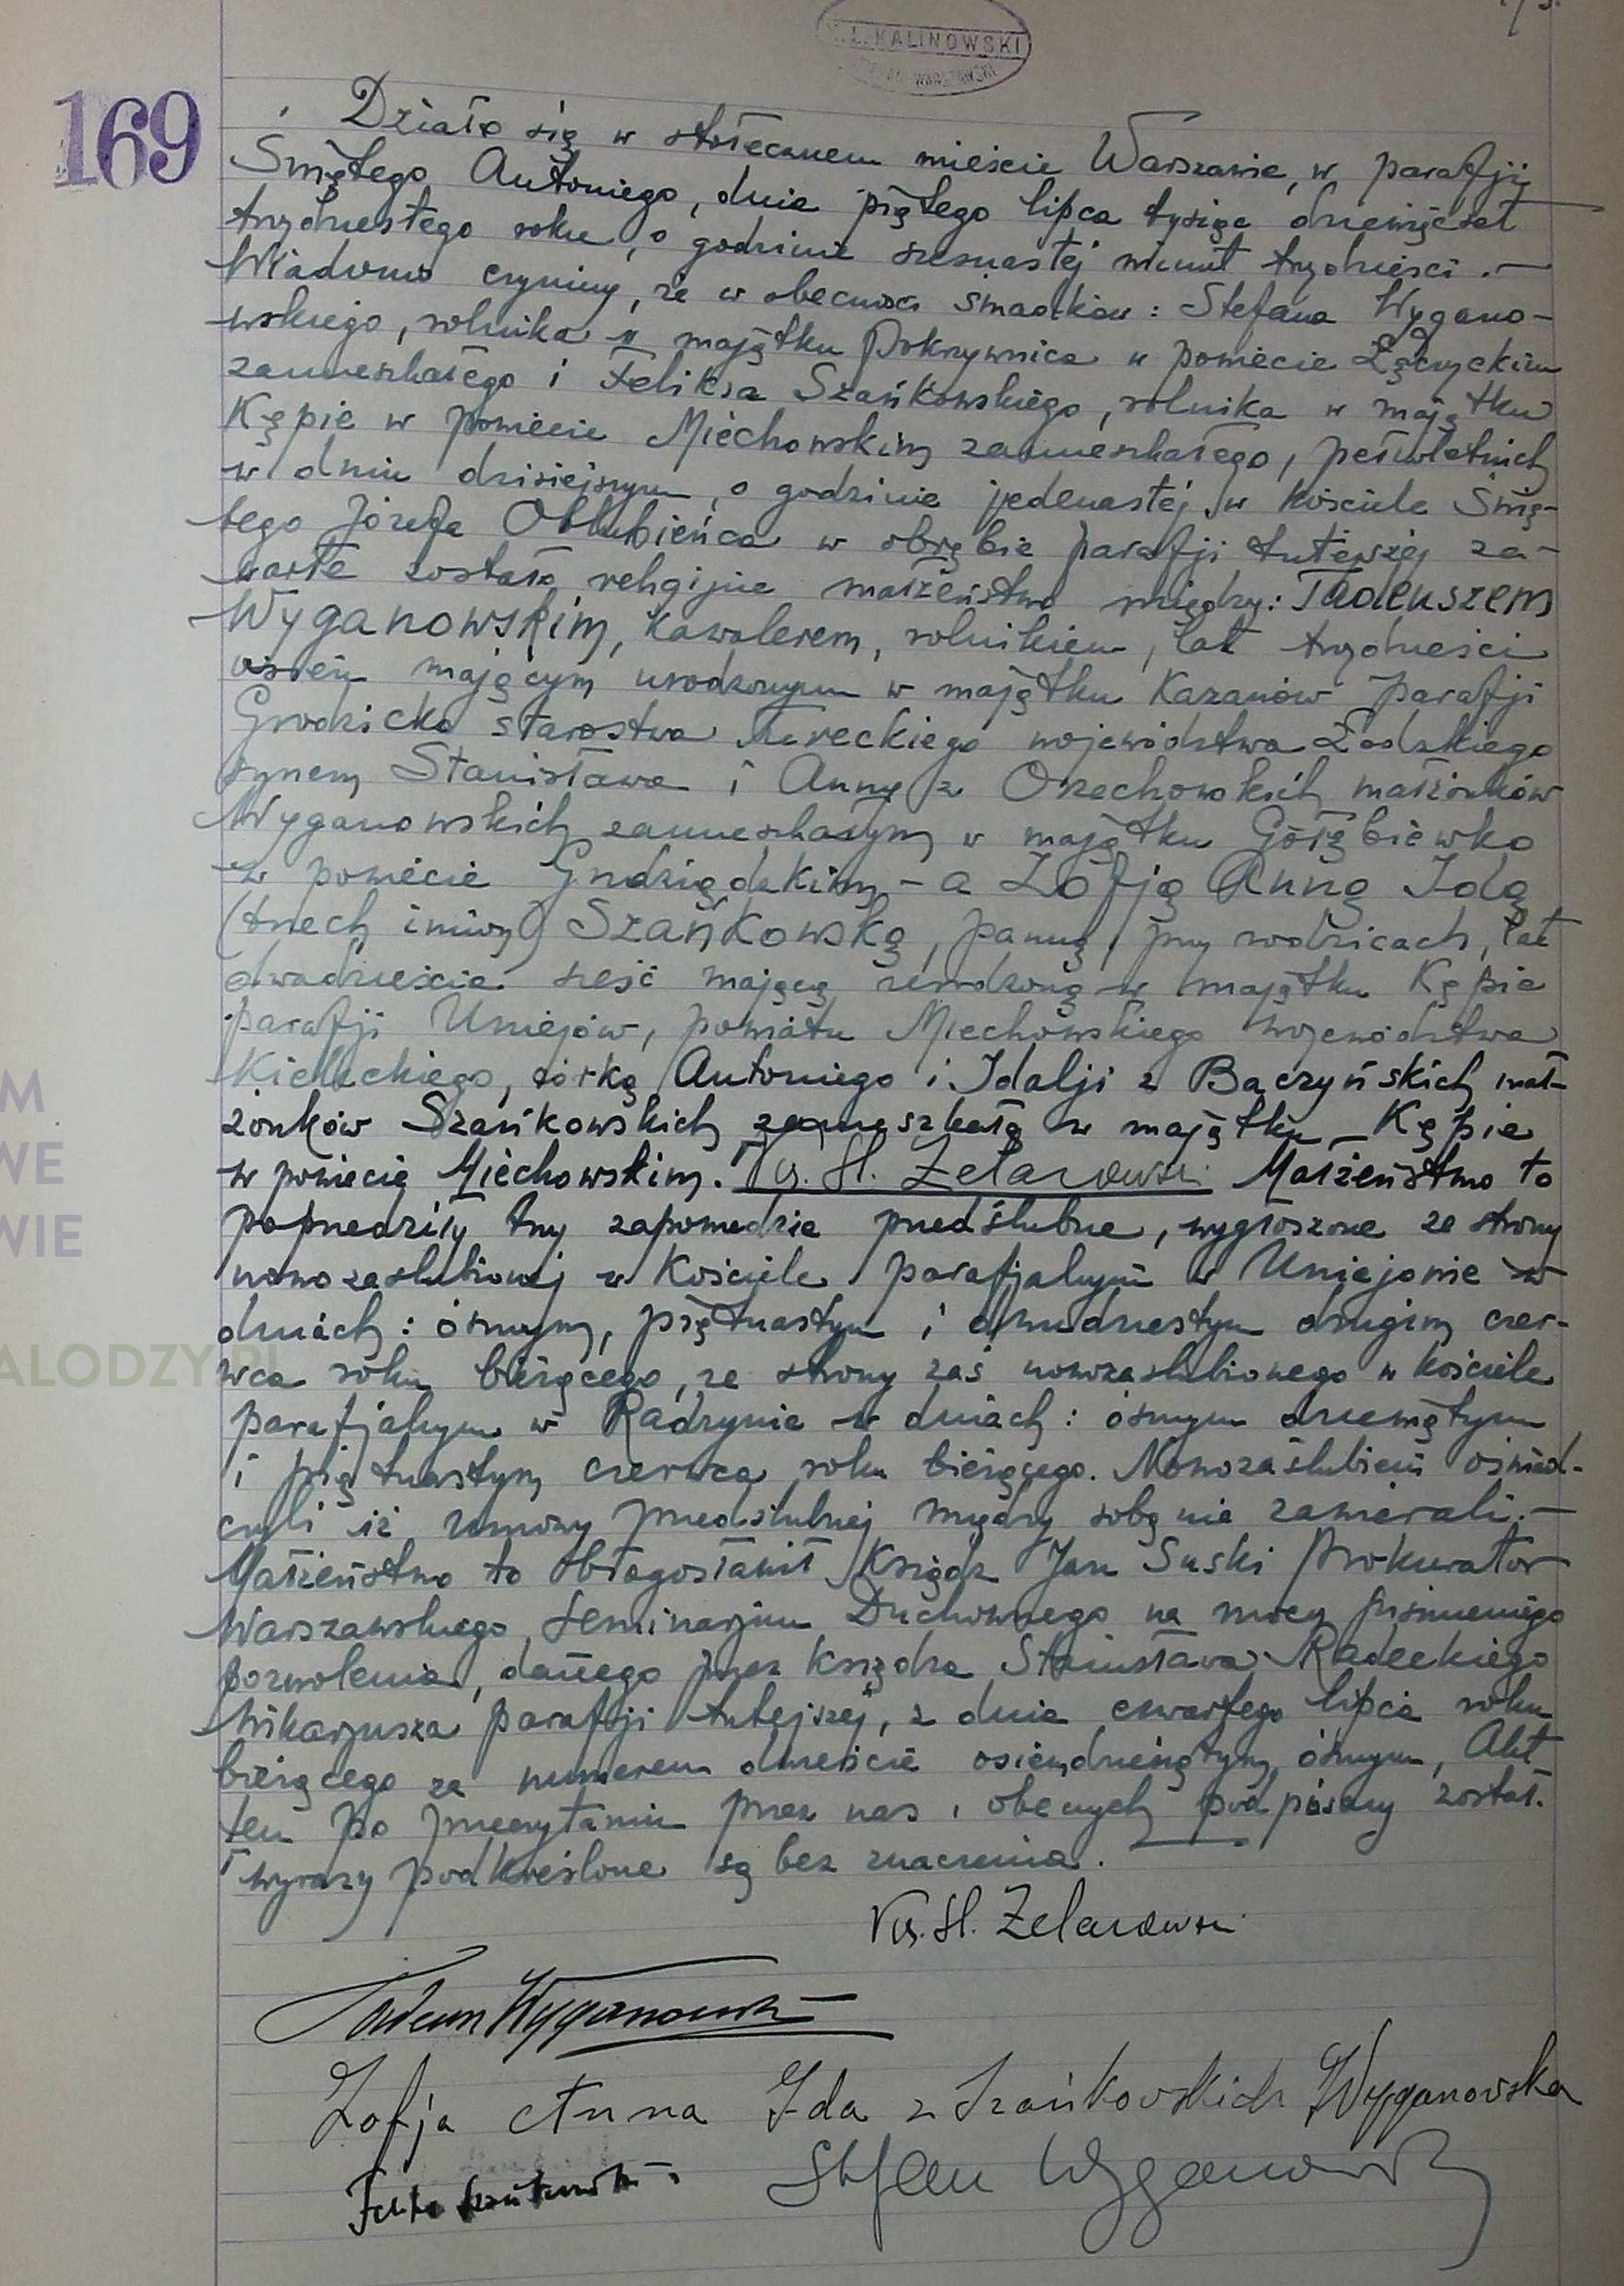 KALINOWSKI
169
Działo się w stołecznem mieście Warszawie, w parafji
Świętego Antoniego, dnia piątego lipca tysiąc dziewięćset
trzydziestego roku, o godzinie szesnastej minut trzydzieści.—
Wiadomo czynimy, że w obecności świadków: Stefana Wygano-
wskiego, rolnika w majątku Pokrzywnica w powiecie Łęczyckim
zamieszkałego i Feliksa Szańkowskiego, rolnika w majątku
Kępie w powiecie Miechowskim zamieszkałego, pełnoletnich
w dniu dzisiejszym, o godzinie jedenastej w kościele Świę-
tego Józefa Oblubieńca w obrębie parafji tutejszej za-
warte zostało religijne małżeństwo między: Tadeuszem
Wyganowskim, kawalerem, rolnikiem, lat trzydzieści
osiem mającym urodzonym w majątku Kazanów parafji
Grodzicko starostwa Tureckiego województwa Łódzkiego
synem Stanisława i Anny z Orzechowskich małżonków
Wyganowskich zamieszkałym w majątku Gołębiewko
w powiecie Grudziądzkim – a Zofją Anną Idą
(trzech imion) Szańkowską, panną, przy rodzicach, lat
dwadzieścia sześć mającą urodzoną w majątku Kępie
parafji Uniejów, powiatu Miechowskiego województwa
Kieleckiego, córką Antoniego i Idalji z Baczyńskich mał-
żonków Szańkowskich zamieszkałą w majątku Kępie
w powiecie Miechowskim. Ks. St. Żelazowski Małżeństwo to
poprzedziły trzy zapowiedzie przedślubne, wygłoszone ze strony
nowozaslubionej w Kościele parafjalnym w Uniejowie w
dniach: ósmym, piętnastym i dwudziestym drugim czer-
wca roku bieżącego, ze strony zaś nowozaslubionego w kościele
parafjalnym w Radzynie w dniach: ósmym dziewiątym
i piętnastym czerwca roku bieżącego. Nowozaślubieni oświad-
czyli iż umowy przedslubnej między sobą nie zawierali.—
Małżeństwo to błogosławił Ksiądz Jan Suski Prokurator
Warszawskiego Seminarjum Duchownego na mocy piśmiennego
pozwolenia, danego przez księdza Stanisława Radeckiego
Wikarjusza parafji tutejszej, z dnia czwartego lipca roku
bieżącego za numerem dwieście osiemdziesiątym ósmym, Akt
ten po przeczytaniu przez nas i obecnych podpisany został.
wyrazy podkreślone są bez znaczenia.
Ks. St. Żelazowski
Tadeusz Wyganowski
Zofja Anna Ida z Szańkowskich Wyganowska
Stefan Wyganowski